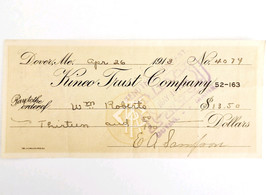 Dover, Me. Apr 26 1912 No. 4079
Kineo Trust Company 52-163
Pay to the order of Wm Roberts $13.50
Thirteen and 50 Dollars
E A Sampson